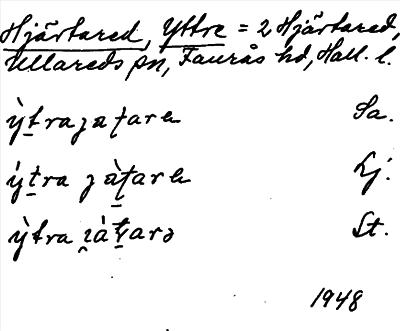 Hjärtared, Yttre = 2 Hjärtared,
Ullareds sn, Faurås hd, Hall. l.
ỳtrajaṭare Sa.
ýtra jàṭare Lj.
ỳtra ɿàṭarə St.
1948